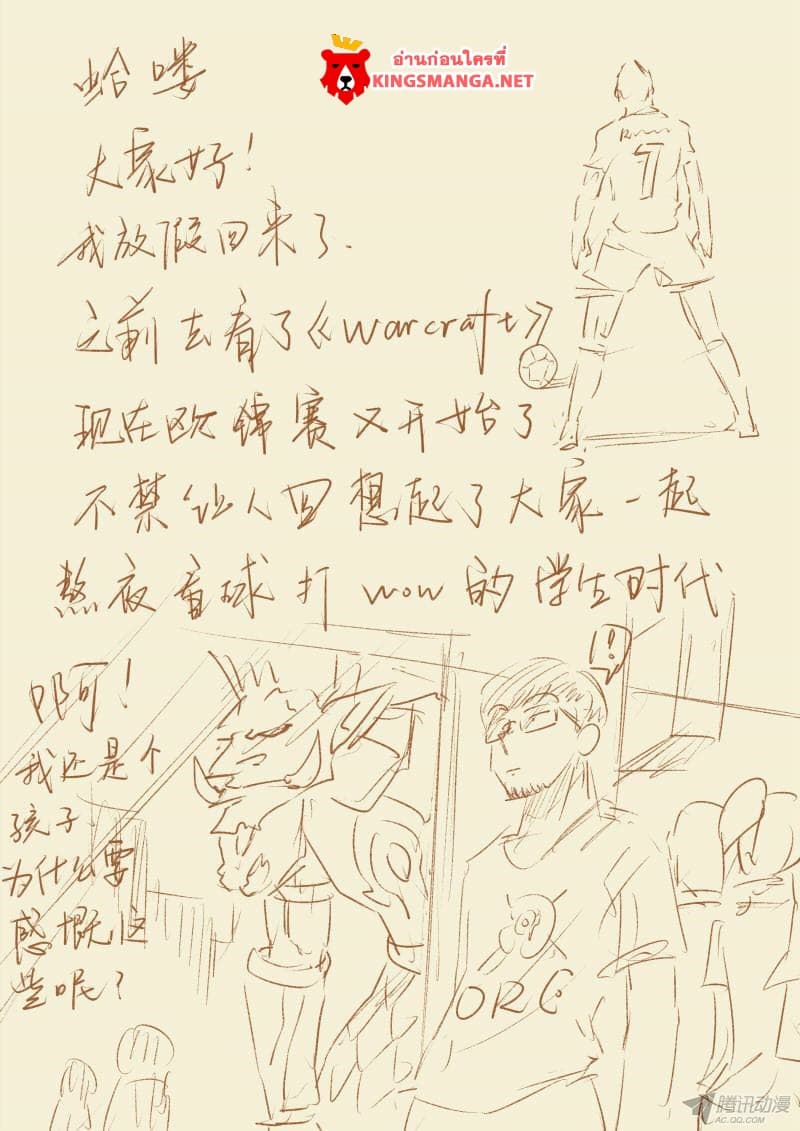 อ่านก่อนใครที่
KINGSMANGA.NET
哈喽
大家好!
我放假回来了.
之前去看了《warcraft》
现在欧锦赛又开始了
不禁让人回想起了大家一起
熬夜看球打wow的学生时代
啊!
我还是个
孩子
为什么要
感慨这
些呢?
7
!
ORC
腾讯动漫
AC.QQ.COM